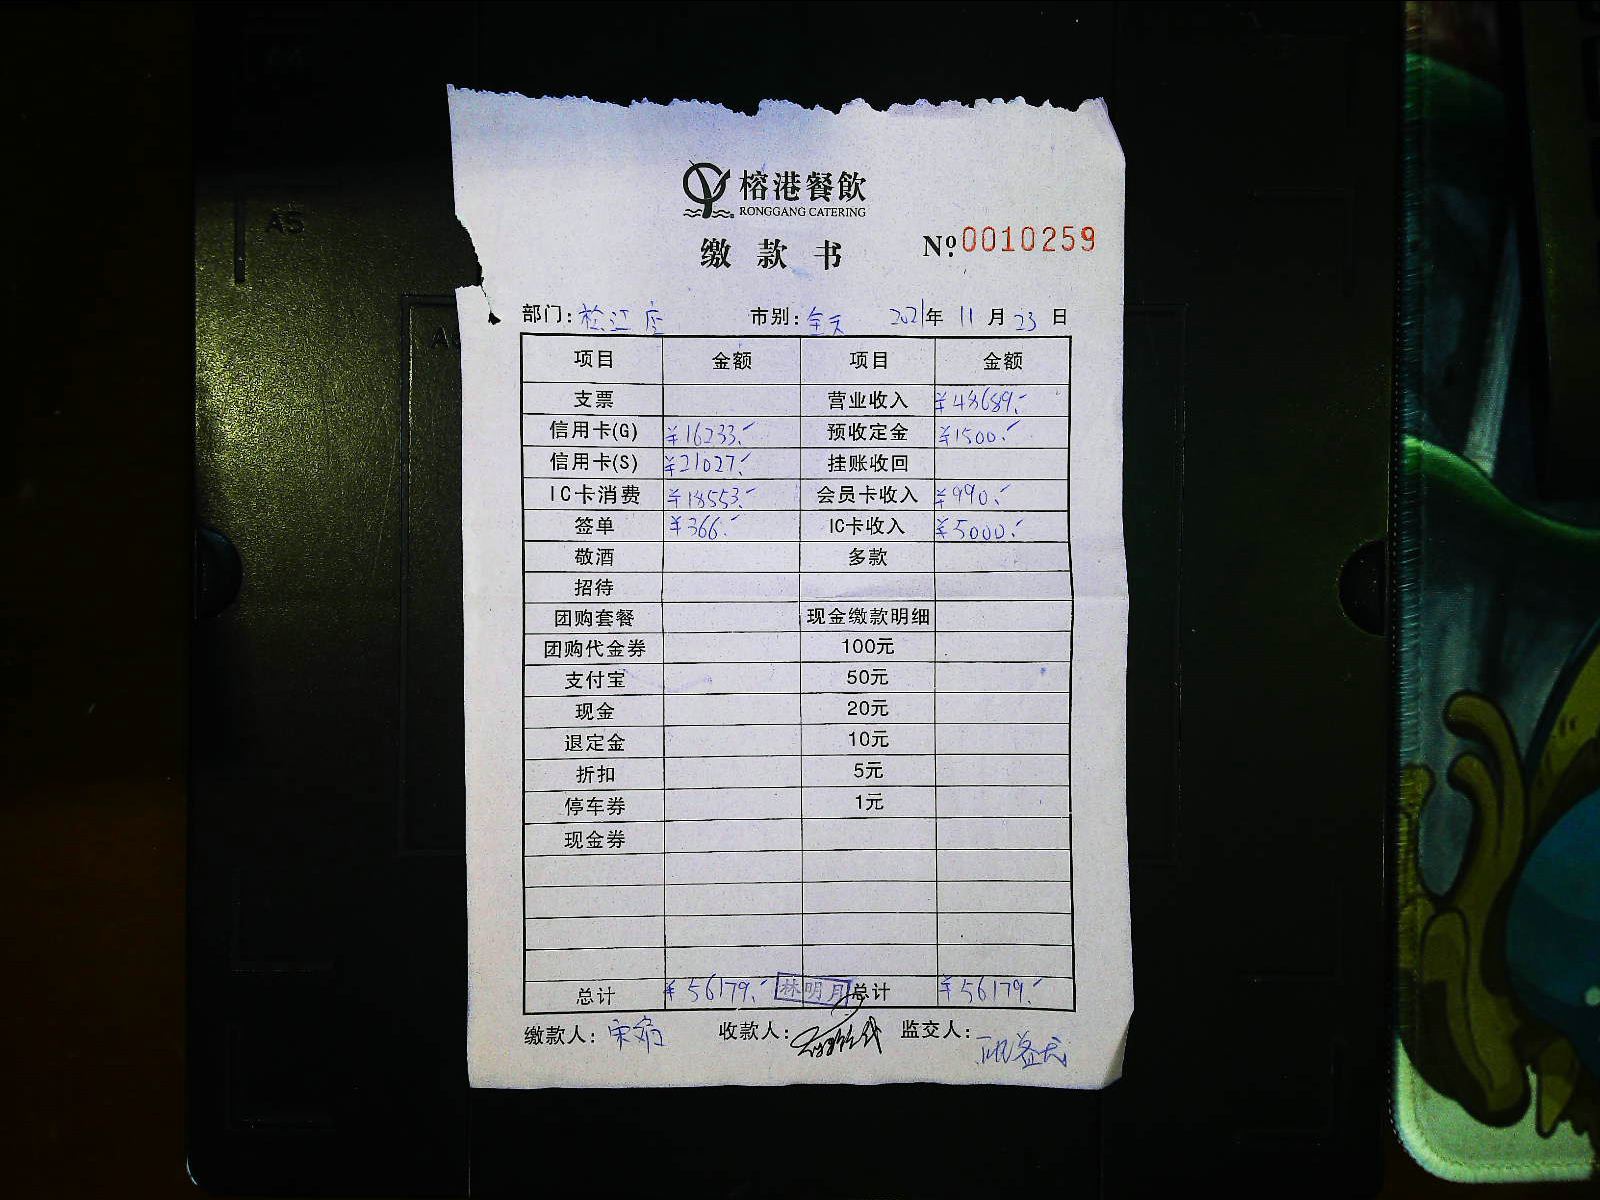 A5
榕港餐飲
RONGGANG CATERING
缴款书
№:0010259
部门:松江店 市别:全天 2021年11月23日
项目 金额 项目 金额
支票 营业收入 ¥48689.-
信用卡(G) ¥16233.- 预收定金 ¥1500.-
信用卡(S) ¥21027.- 挂账收回
IC卡消费 ¥18553.- 会员卡收入 ¥990.-
签单 ¥366.- IC卡收入 ¥5000.-
敬酒 多款
招待
团购套餐 现金缴款明细
团购代金券 100元
支付宝 50元
现金 20元
退定金 10元
折扣 5元
停车券 1元
现金券
总计 ¥56179.- 林明月 总计 ¥56179.-
缴款人: 收款人: 监交人: